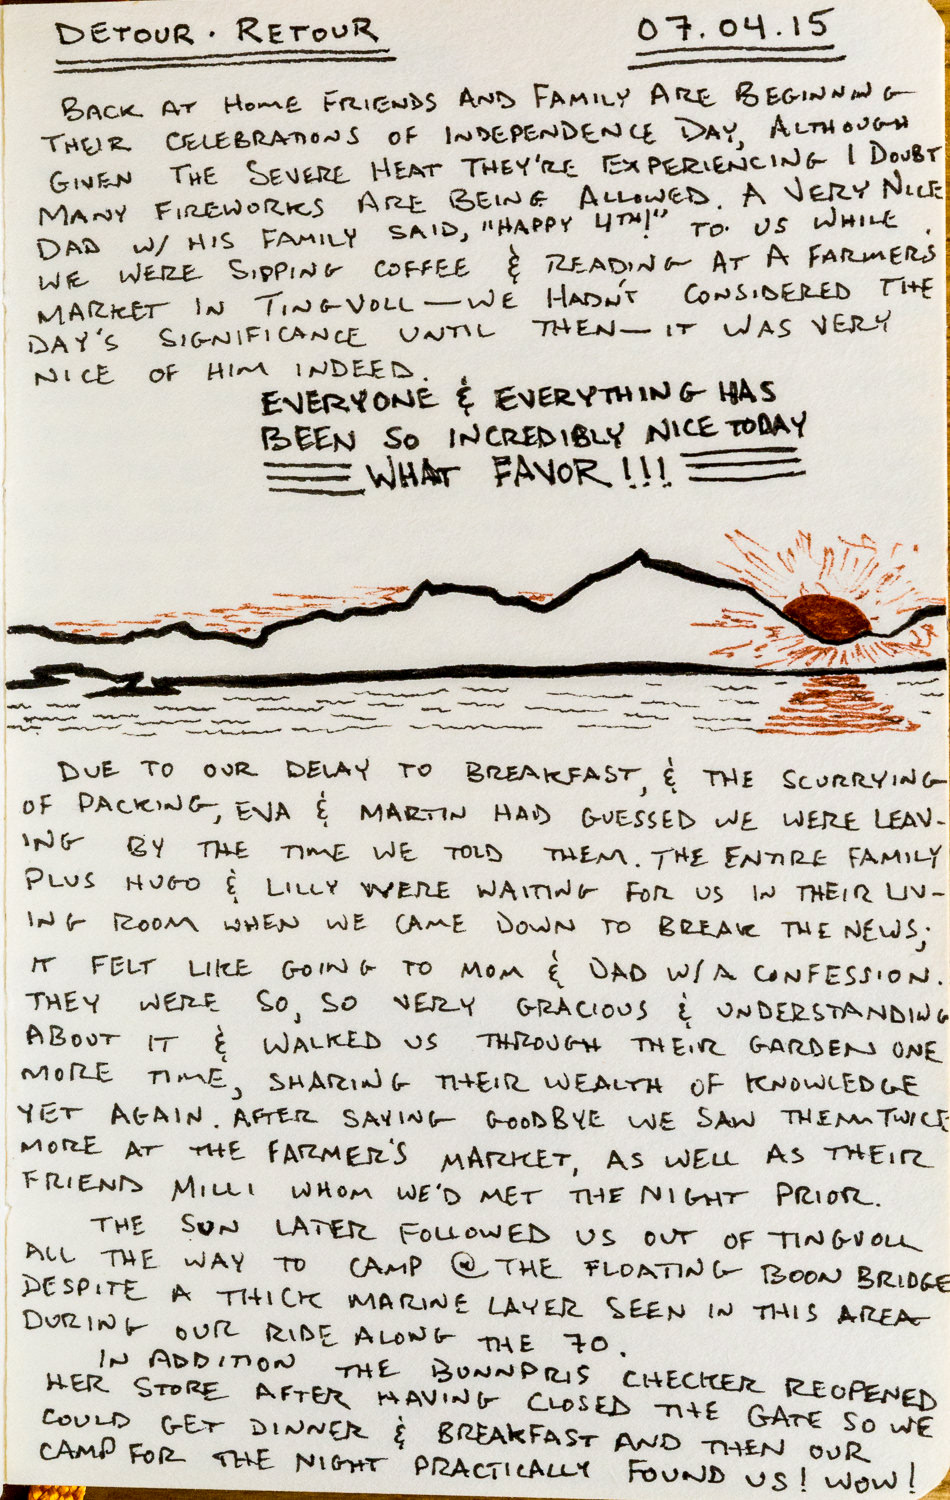 DETOUR · RETOUR
07.04.15
BACK AT HOME FRIENDS AND FAMILY ARE BEGINNING
THEIR CELEBRATIONS OF INDEPENDENCE DAY, ALTHOUGH
GIVEN THE SEVERE HEAT THEY'RE EXPERIENCING I DOUBT
MANY FIREWORKS ARE BEING ALLOWED. A VERY NICE
DAD W/ HIS FAMILY SAID, "HAPPY 4TH!" TO US WHILE
WE WERE SIPPING COFFEE & READING AT A FARMER'S
MARKET IN TINGVOLL — WE HADN'T CONSIDERED THE
DAY'S SIGNIFICANCE UNTIL THEN — IT WAS VERY
NICE OF HIM INDEED.
EVERYONE & EVERYTHING HAS
BEEN SO INCREDIBLY NICE TODAY
WHAT FAVOR!!!
DUE TO OUR DELAY TO BREAKFAST, & THE SCURRYING
OF PACKING, EVA & MARTIN HAD GUESSED WE WERE LEAV-
ING BY THE TIME WE TOLD THEM. THE ENTIRE FAMILY
PLUS HUGO & LILLY WERE WAITING FOR US IN THEIR LIV-
ING ROOM WHEN WE CAME DOWN TO BREAK THE NEWS;
IT FELT LIKE GOING TO MOM & DAD W/ A CONFESSION.
THEY WERE SO, SO VERY GRACIOUS & UNDERSTANDING
ABOUT IT & WALKED US THROUGH THEIR GARDEN ONE
MORE TIME, SHARING THEIR WEALTH OF KNOWLEDGE
YET AGAIN. AFTER SAYING GOODBYE WE SAW THEM TWICE
MORE AT THE FARMER'S MARKET, AS WELL AS THEIR
FRIEND MILLI WHOM WE'D MET THE NIGHT PRIOR.
THE SUN LATER FOLLOWED US OUT OF TINGVOLL
ALL THE WAY TO CAMP @ THE FLOATING BOON BRIDGE
DESPITE A THICK MARINE LAYER SEEN IN THIS AREA
DURING OUR RIDE ALONG THE 70.
IN ADDITION THE BUNNPRIS CHECKER REOPENED
HER STORE AFTER HAVING CLOSED THE GATE SO WE
COULD GET DINNER & BREAKFAST AND THEN OUR
CAMP FOR THE NIGHT PRACTICALLY FOUND US! WOW!